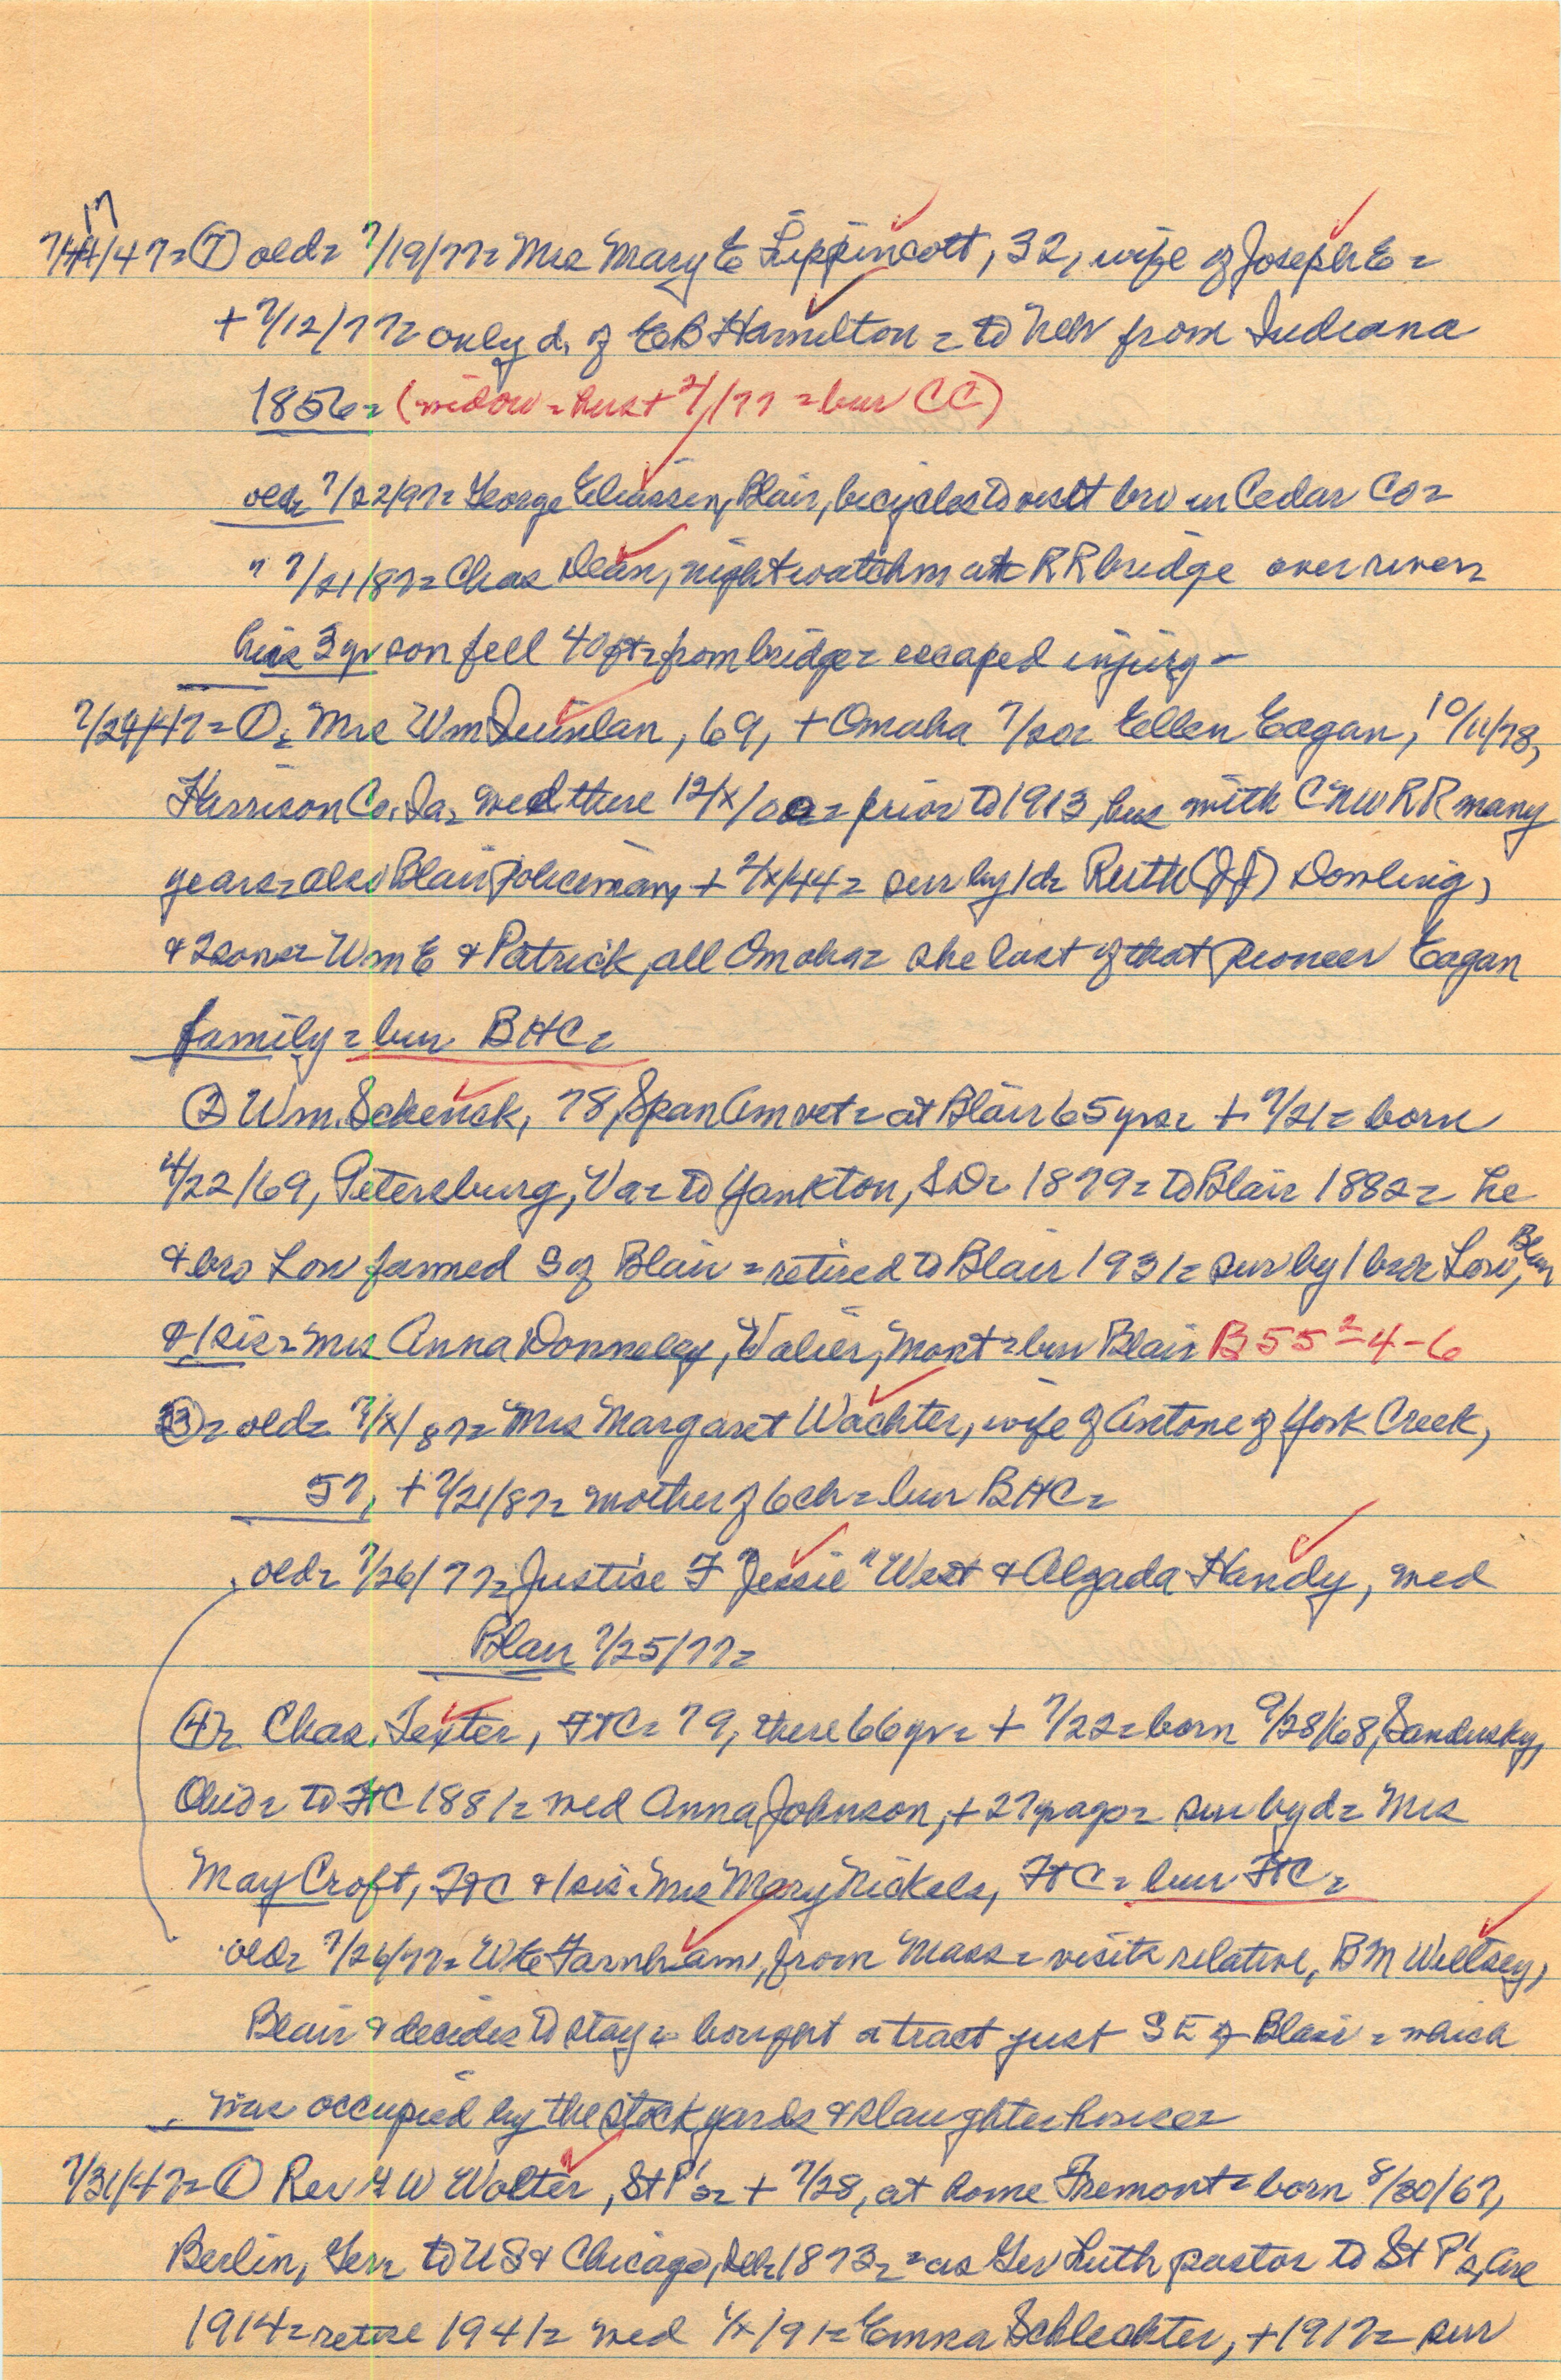 17
7/24/47= ⑦ old= 7/19/77= Mrs Mary E Lippincott, 32, wife of Joseph E=
+ 7/12/77= only d. of EB Hamilton = to Neb from Indiana
1856= (widow = hus + 2/1/77 = bur CC)
old= 7/22/97= George Eliassen, Blair, bicycles to visit bro in Cedar Co=
" 7/21/87= Chas Dean, nightwatchm at RR bridge over river=
his 3 yr son fell 40 ft= from bridge= escaped injury-
7/24/47= ①= Mrs Wm Quinlan, 69, + Omaha 7/20= Ellen Eagan, 10/11/78,
Harrison Co. Ia= wed there 12/x/00= prior to 1913, hus with CNW RR many
years= also Blair Policeman, + 2/x/44= sur by 1 d= Ruth (JJ) Dowling,
& 2 sons= Wm E & Patrick, all Omaha= she last of that pioneer Eagan
family= bur BHC=
② Wm. Schenck, 78, Span Am vet= at Blair 65 yrs= + 7/21= born
4/22/69, Petersburg, Va= to Yankton, SD= 1879= to Blair 1882= he
& bro Lou farmed S of Blair= retired to Blair 1931= sur by 1 bro= Lou, Blair
& 1 sis= Mrs Anna Donneley, Valier, Mont= bur Blair B 55²=4-6
③= old= 7/x/87= Mrs Margaret Wachter, wife of Antone of York Creek,
57, + 7/21/87= mother of 6 ch= bur BHC=
old= 7/26/77= Justise F "Jessie" West & Algada Handy, wed
Blair 7/25/77=
④= Chas. Texter, FtC= 79, there 66 yr= + 7/22= born 9/28/68, Sandusky,
Ohio= to FtC 1881= wed Anna Johnson, + 27 yr ago= sur by d= Mrs
May Croft, FtC & 1 sis= Mrs Mary Nickels, FtC= bur FtC=
old= 7/26/77= WE Farnham, from Mass= visits relative, BM Willsey,
Blair & decides to stay= bought a tract just SE of Blair= which
was occupied by the stock yards & slaughter houses=
7/31/47= ① Rev G W Wolter, St P's= + 7/28, at home Fremont= born 8/30/67,
Berlin, Ger= to US & Chicago, Ill= 1873= = as Ger Luth pastor to St P's, Arl
1914= retire 1941= wed 1/x/91= Emma Schlechter, + 1917= sur